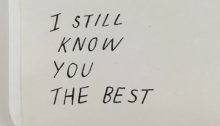 I STILL
KNOW
YOU
THE BEST